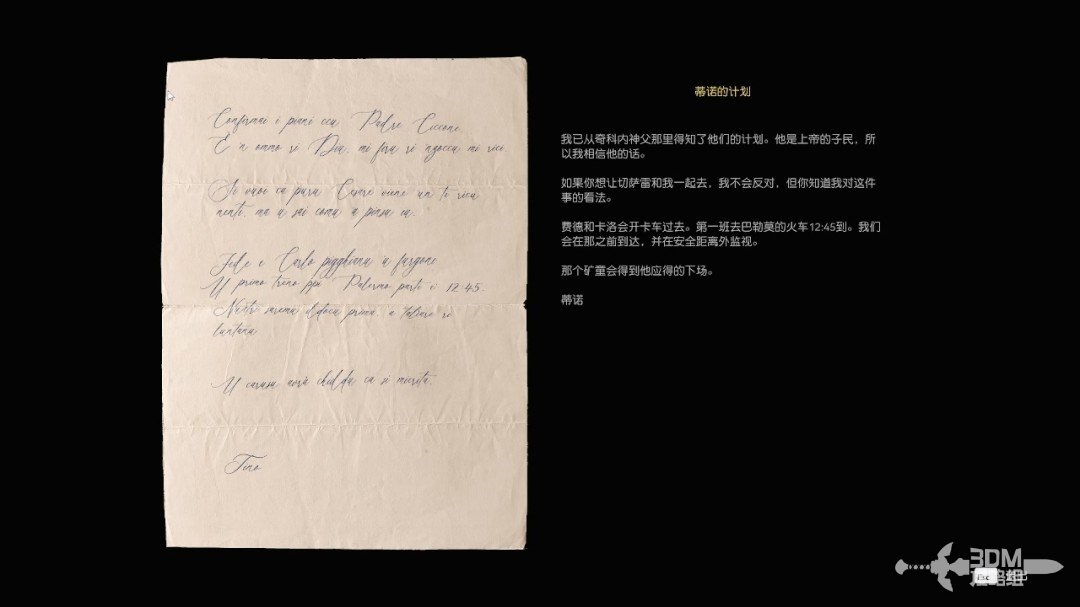 Confirmai i piani ccu Padre Ciccone.
È n ommo ri Diu, mi firu ri nzocca mi rice.
Si vuoi ca puru Cesare viene un ti ricu
nenti, ma u sai comu a pensu ia.
Fede e Carlo pigghianu u furgone.
U primo treno ppi Palermo parte ê 12:45.
Nuatri saremu ddocu prima, a taliare ri
luntanu.
U carusu avrà chiddu ca si mierita.
Tino
蒂诺的计划
我已从奇科内神父那里得知了他们的计划。他是上帝的子民，所
以我相信他的话。
如果你想让切萨雷和我一起去，我不会反对，但你知道我对这件
事的看法。
费德和卡洛会开卡车过去。第一班去巴勒莫的火车12:45到。我们
会在那之前到达，并在安全距离外监视。
那个矿童会得到他应得的下场。
蒂诺
3DM
Esc